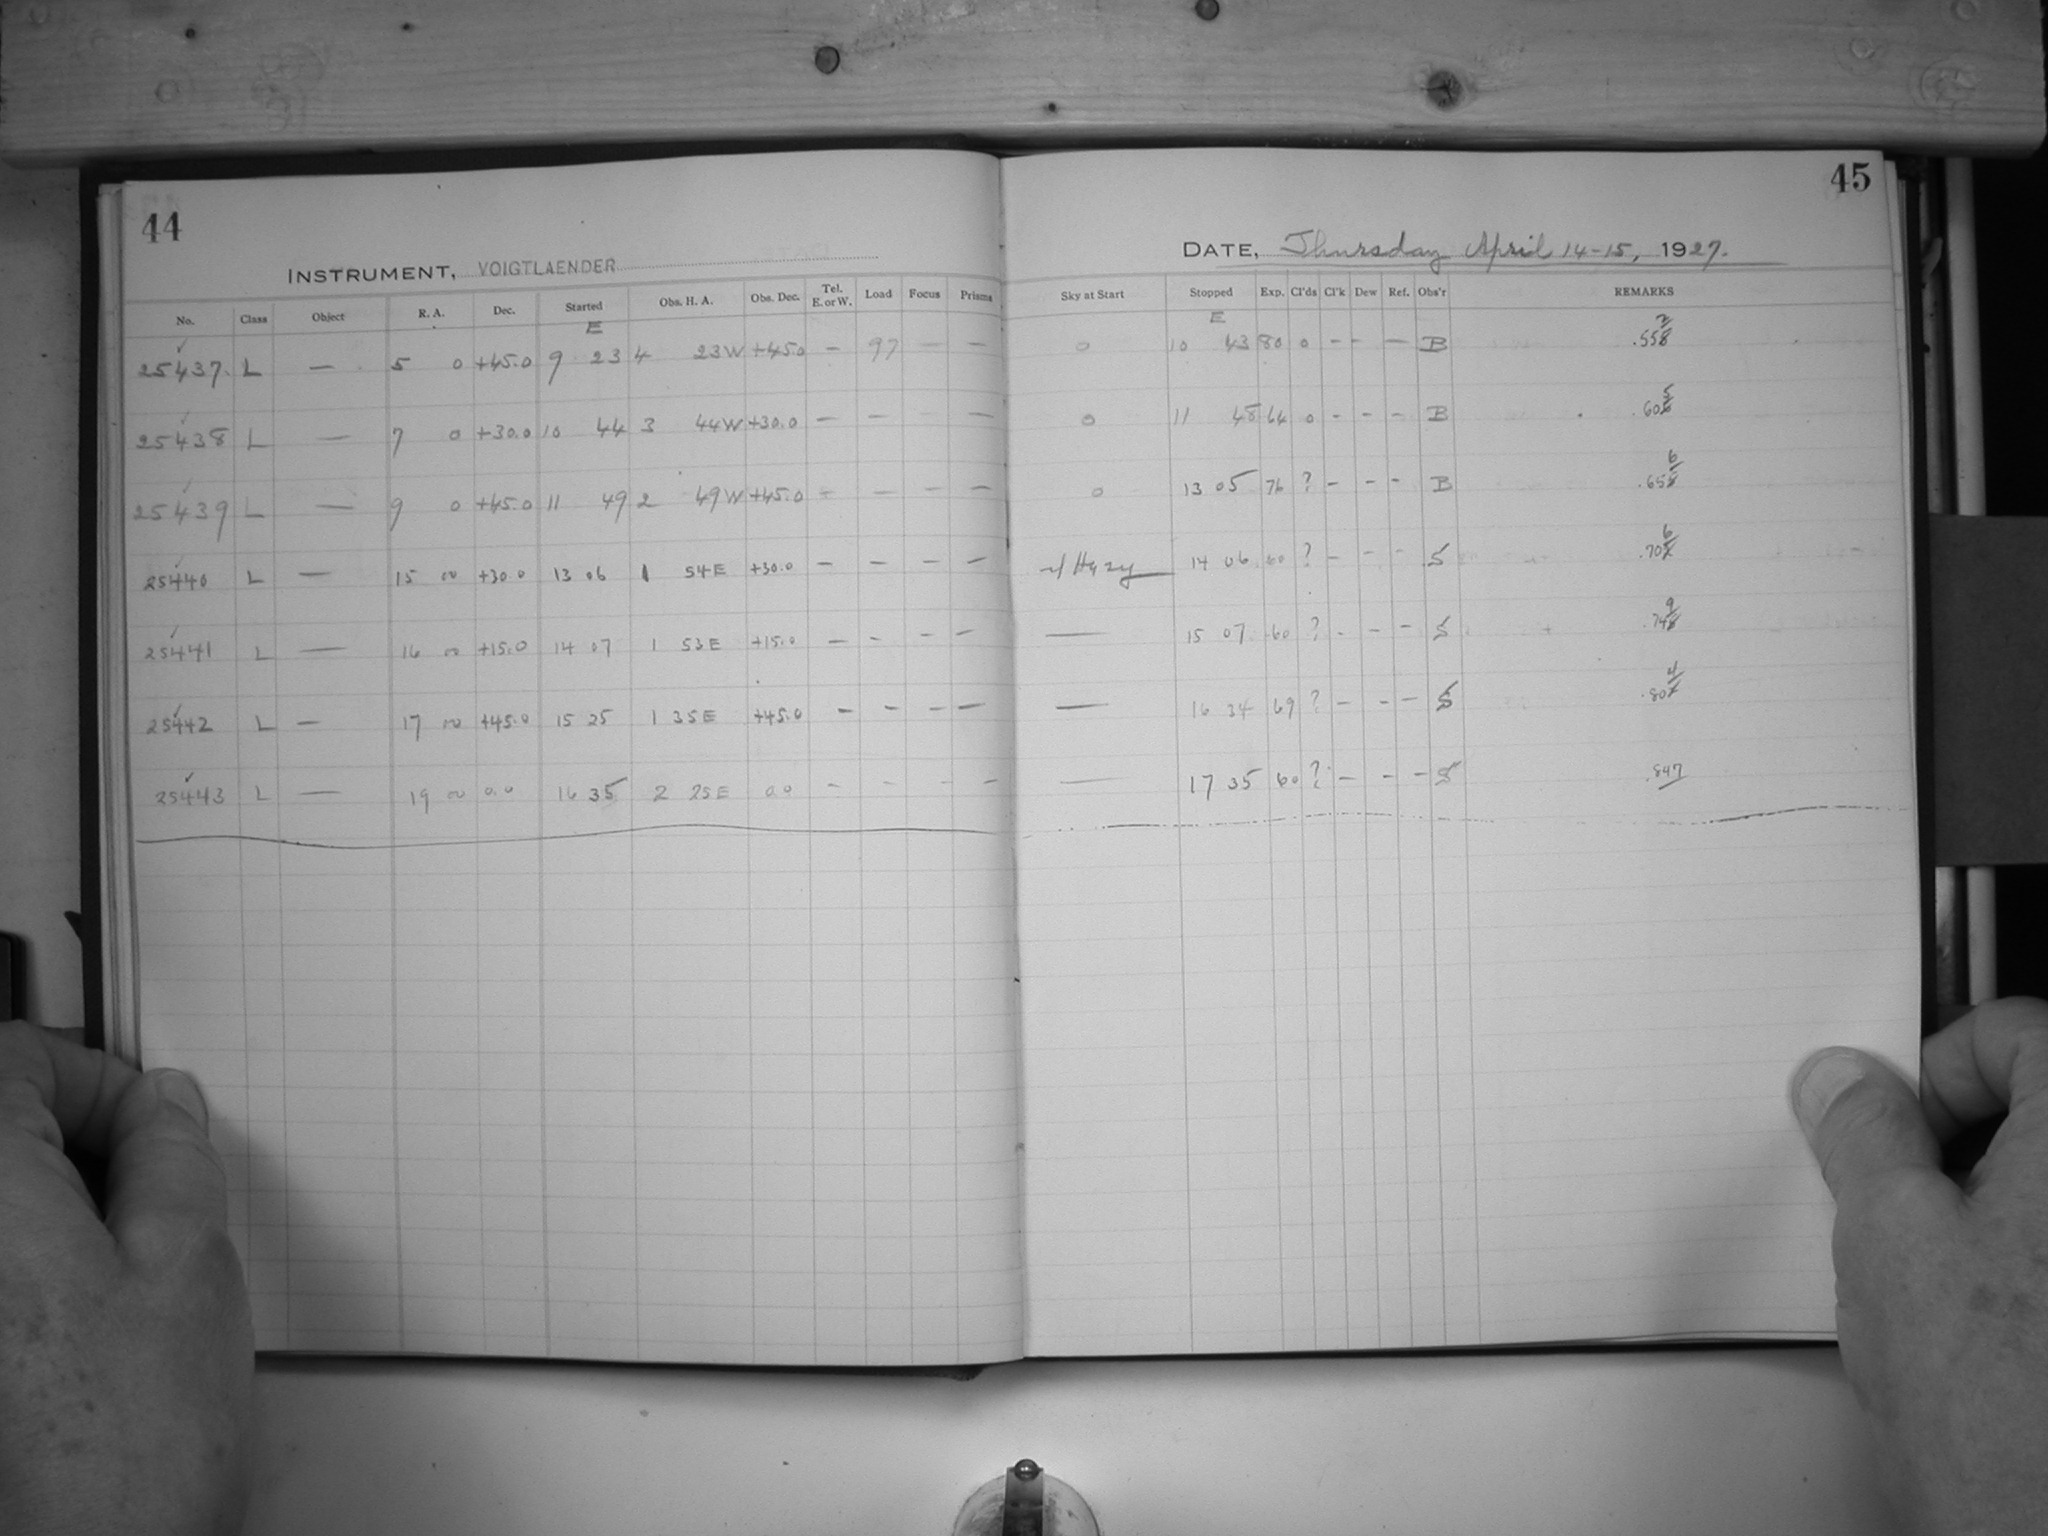 44
INSTRUMENT, VOIGTLAENDER
No. Class Object R. A. Dec. Started Obs. H. A. Obs. Dec. Tel. E. or W. Load Focus Prisms
E
25437 L — 5 0 +45.0 9 23 4 23W +45.0 — 97 — —
25438 L — 7 0 +30.0 10 44 3 44W +30.0 — — — —
25439 L — 9 0 +45.0 11 49 2 49W +45.0 — — — —
25440 L — 15 00 +30.0 13 06 1 54E +30.0 — — — —
25441 L — 16 00 +15.0 14 07 1 53E +15.0 — — — —
25442 L — 17 00 +45.0 15 25 1 35E +45.0 — — — —
25443 L — 19 00 0.0 16 35 2 25E 0.0 — — — —
45
DATE, Thursday April 14-15, 1927.
Sky at Start Stopped Exp. Cl'ds Cl'k Dew Ref. Obs'r REMARKS
E
0 10 43 80 0 — — — B .552
0 11 48 64 0 — — — B .605
0 13 05 76 ? — — — B .656
Hazy 14 06 60 ? — — — S .706
— 15 07 60 ? — — — S .749
— 16 34 69 ? — — — S .804
— 17 35 60 ? — — — S .847